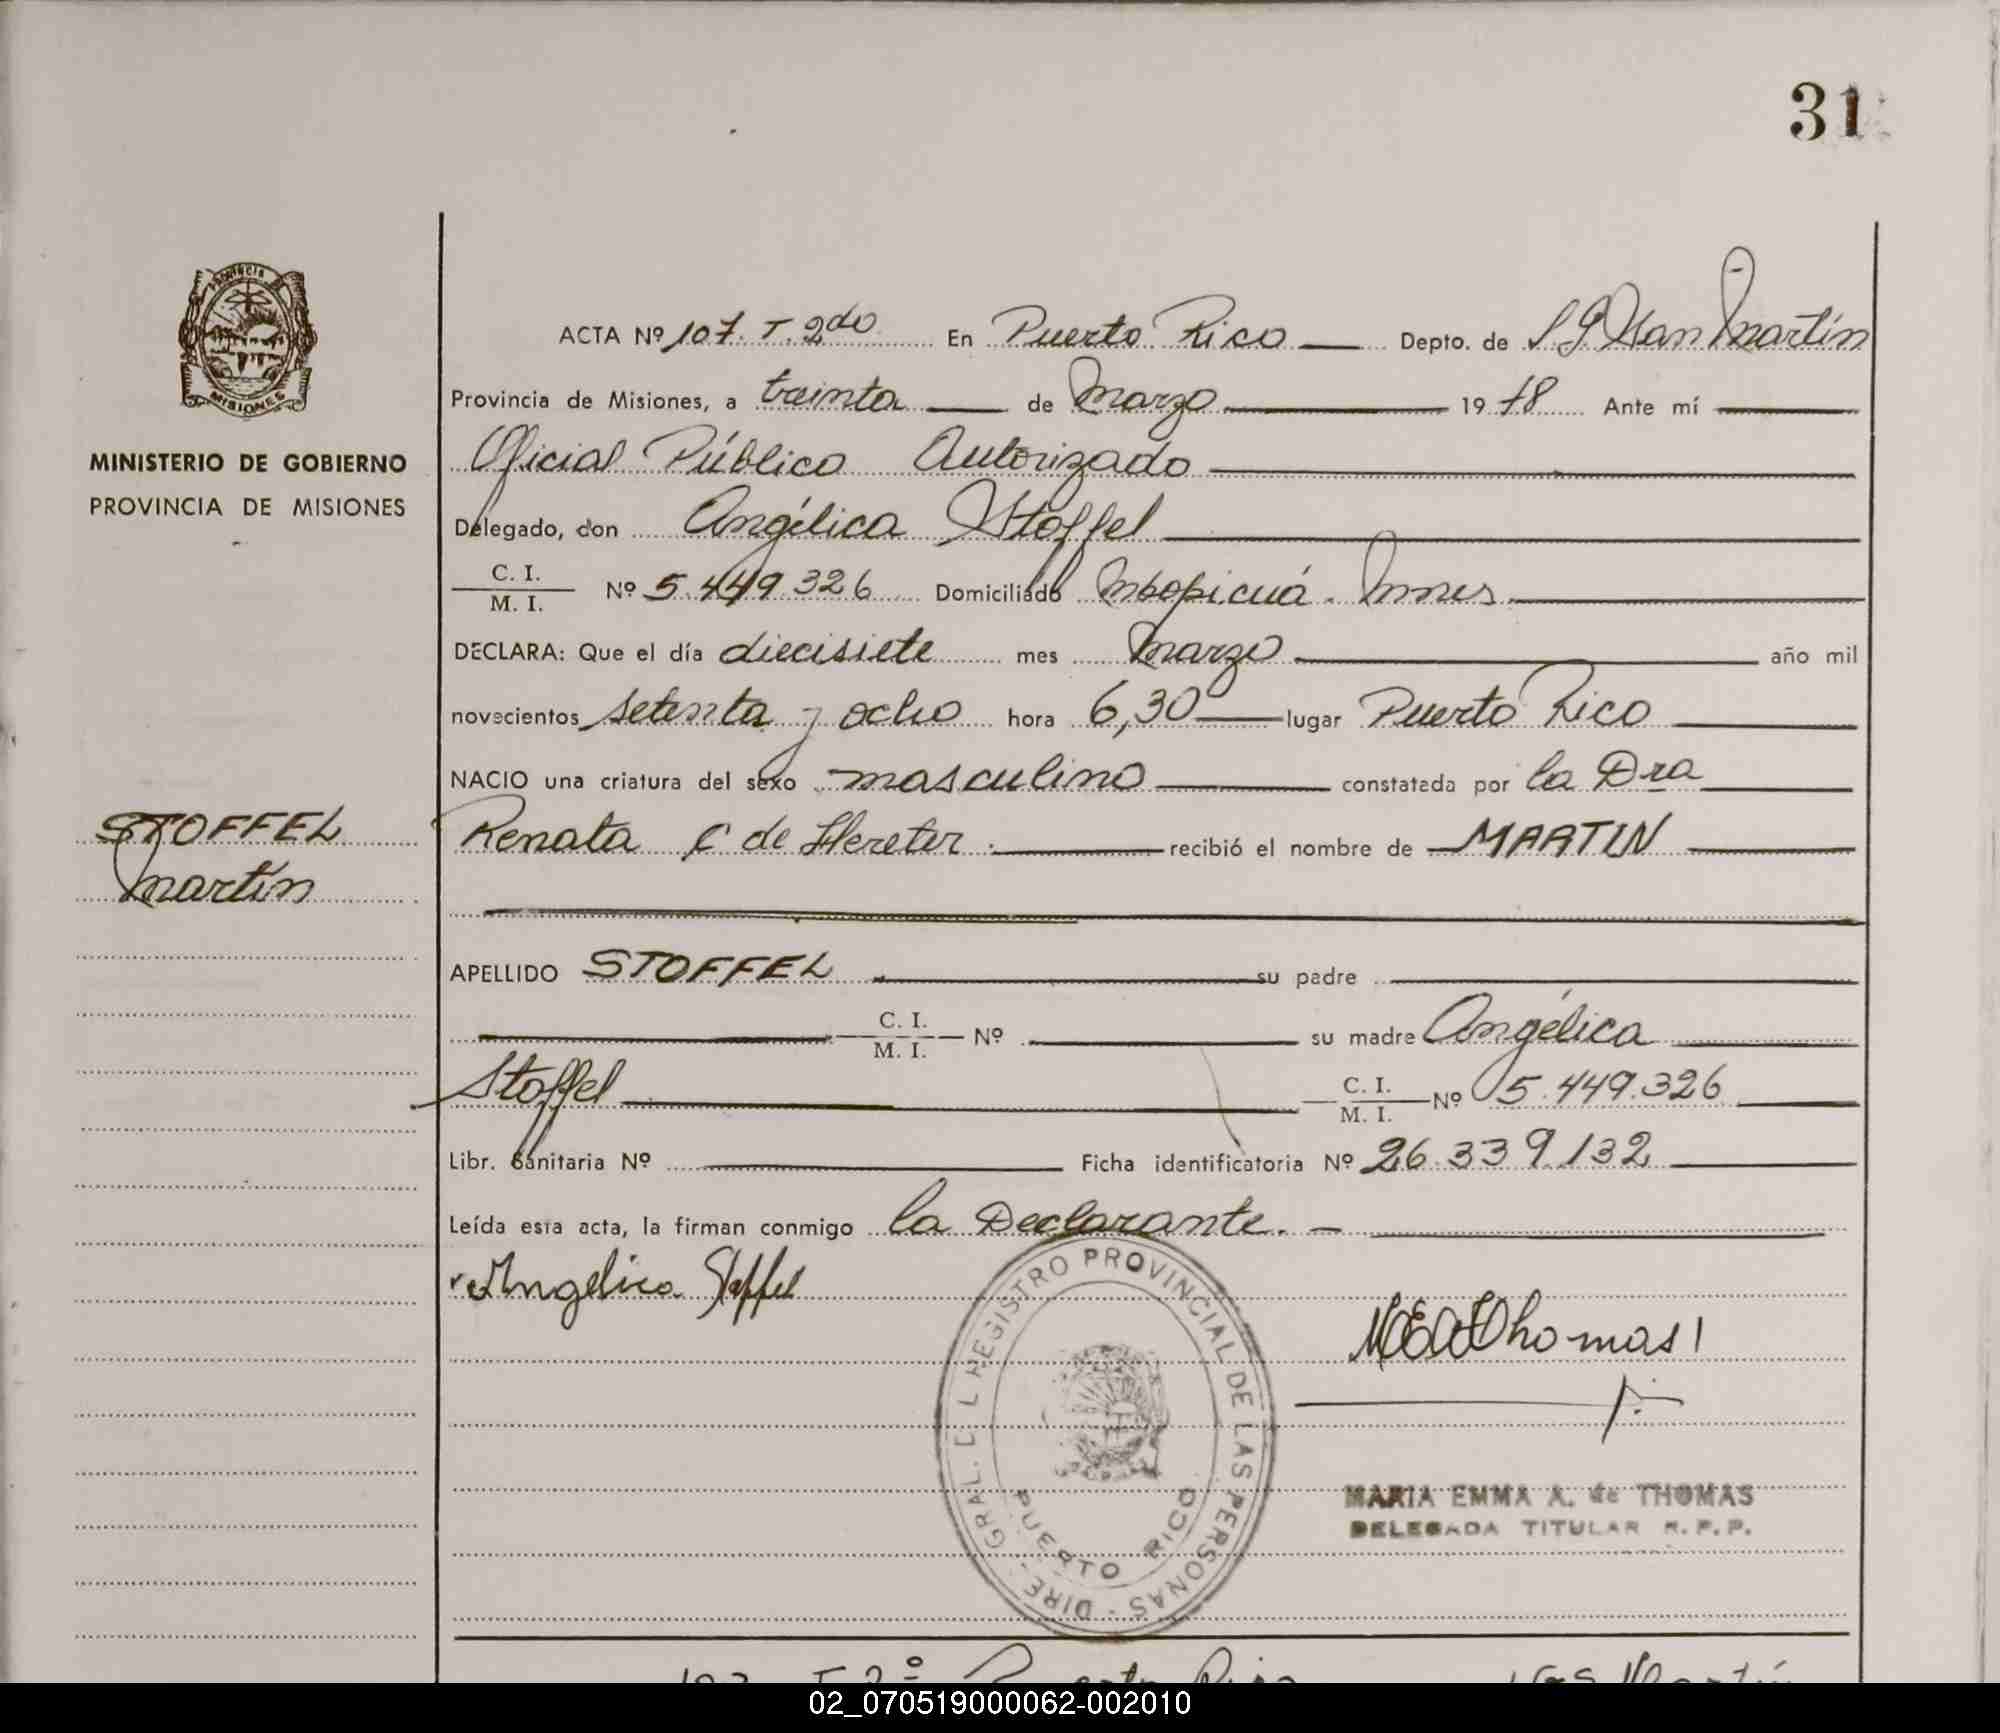 31
Provincia
MISIONES
MINISTERIO DE GOBIERNO
PROVINCIA DE MISIONES
STOFFEL
Martín
ACTA Nº 107. T. 2do En Puerto Rico Depto. de San Martín
Provincia de Misiones, a treinta de Marzo 19 78 Ante mí
Oficial Público Autorizado
Delegado, don Angélica Stoffel
C. I.
M. I. Nº 5.449.326 Domiciliado Mbopicuá. Mnes
DECLARA: Que el día diecisiete mes Marzo año mil
novecientos setenta y ocho hora 6,30 lugar Puerto Rico
NACIO una criatura del sexo masculino constatada por la Dra
Renata C de Hereter recibió el nombre de MARTIN
APELLIDO STOFFEL su padre
C. I.
M. I. Nº su madre Angélica
Stoffel C. I.
M. I. Nº 5.449.326
Libr. Sanitaria Nº Ficha identificatoria Nº 26.339.132
Leída esta acta, la firman conmigo la Declarante. -
Angelica Stoffel
DIRE. GRAL. DEL REGISTRO PROVINCIAL DE LAS PERSONAS -
PUERTO RICO
MEAThomas
MARIA EMMA A. de THOMAS
DELEGADA TITULAR R. P. P.
Puerto Rico
02_070519000062-002010